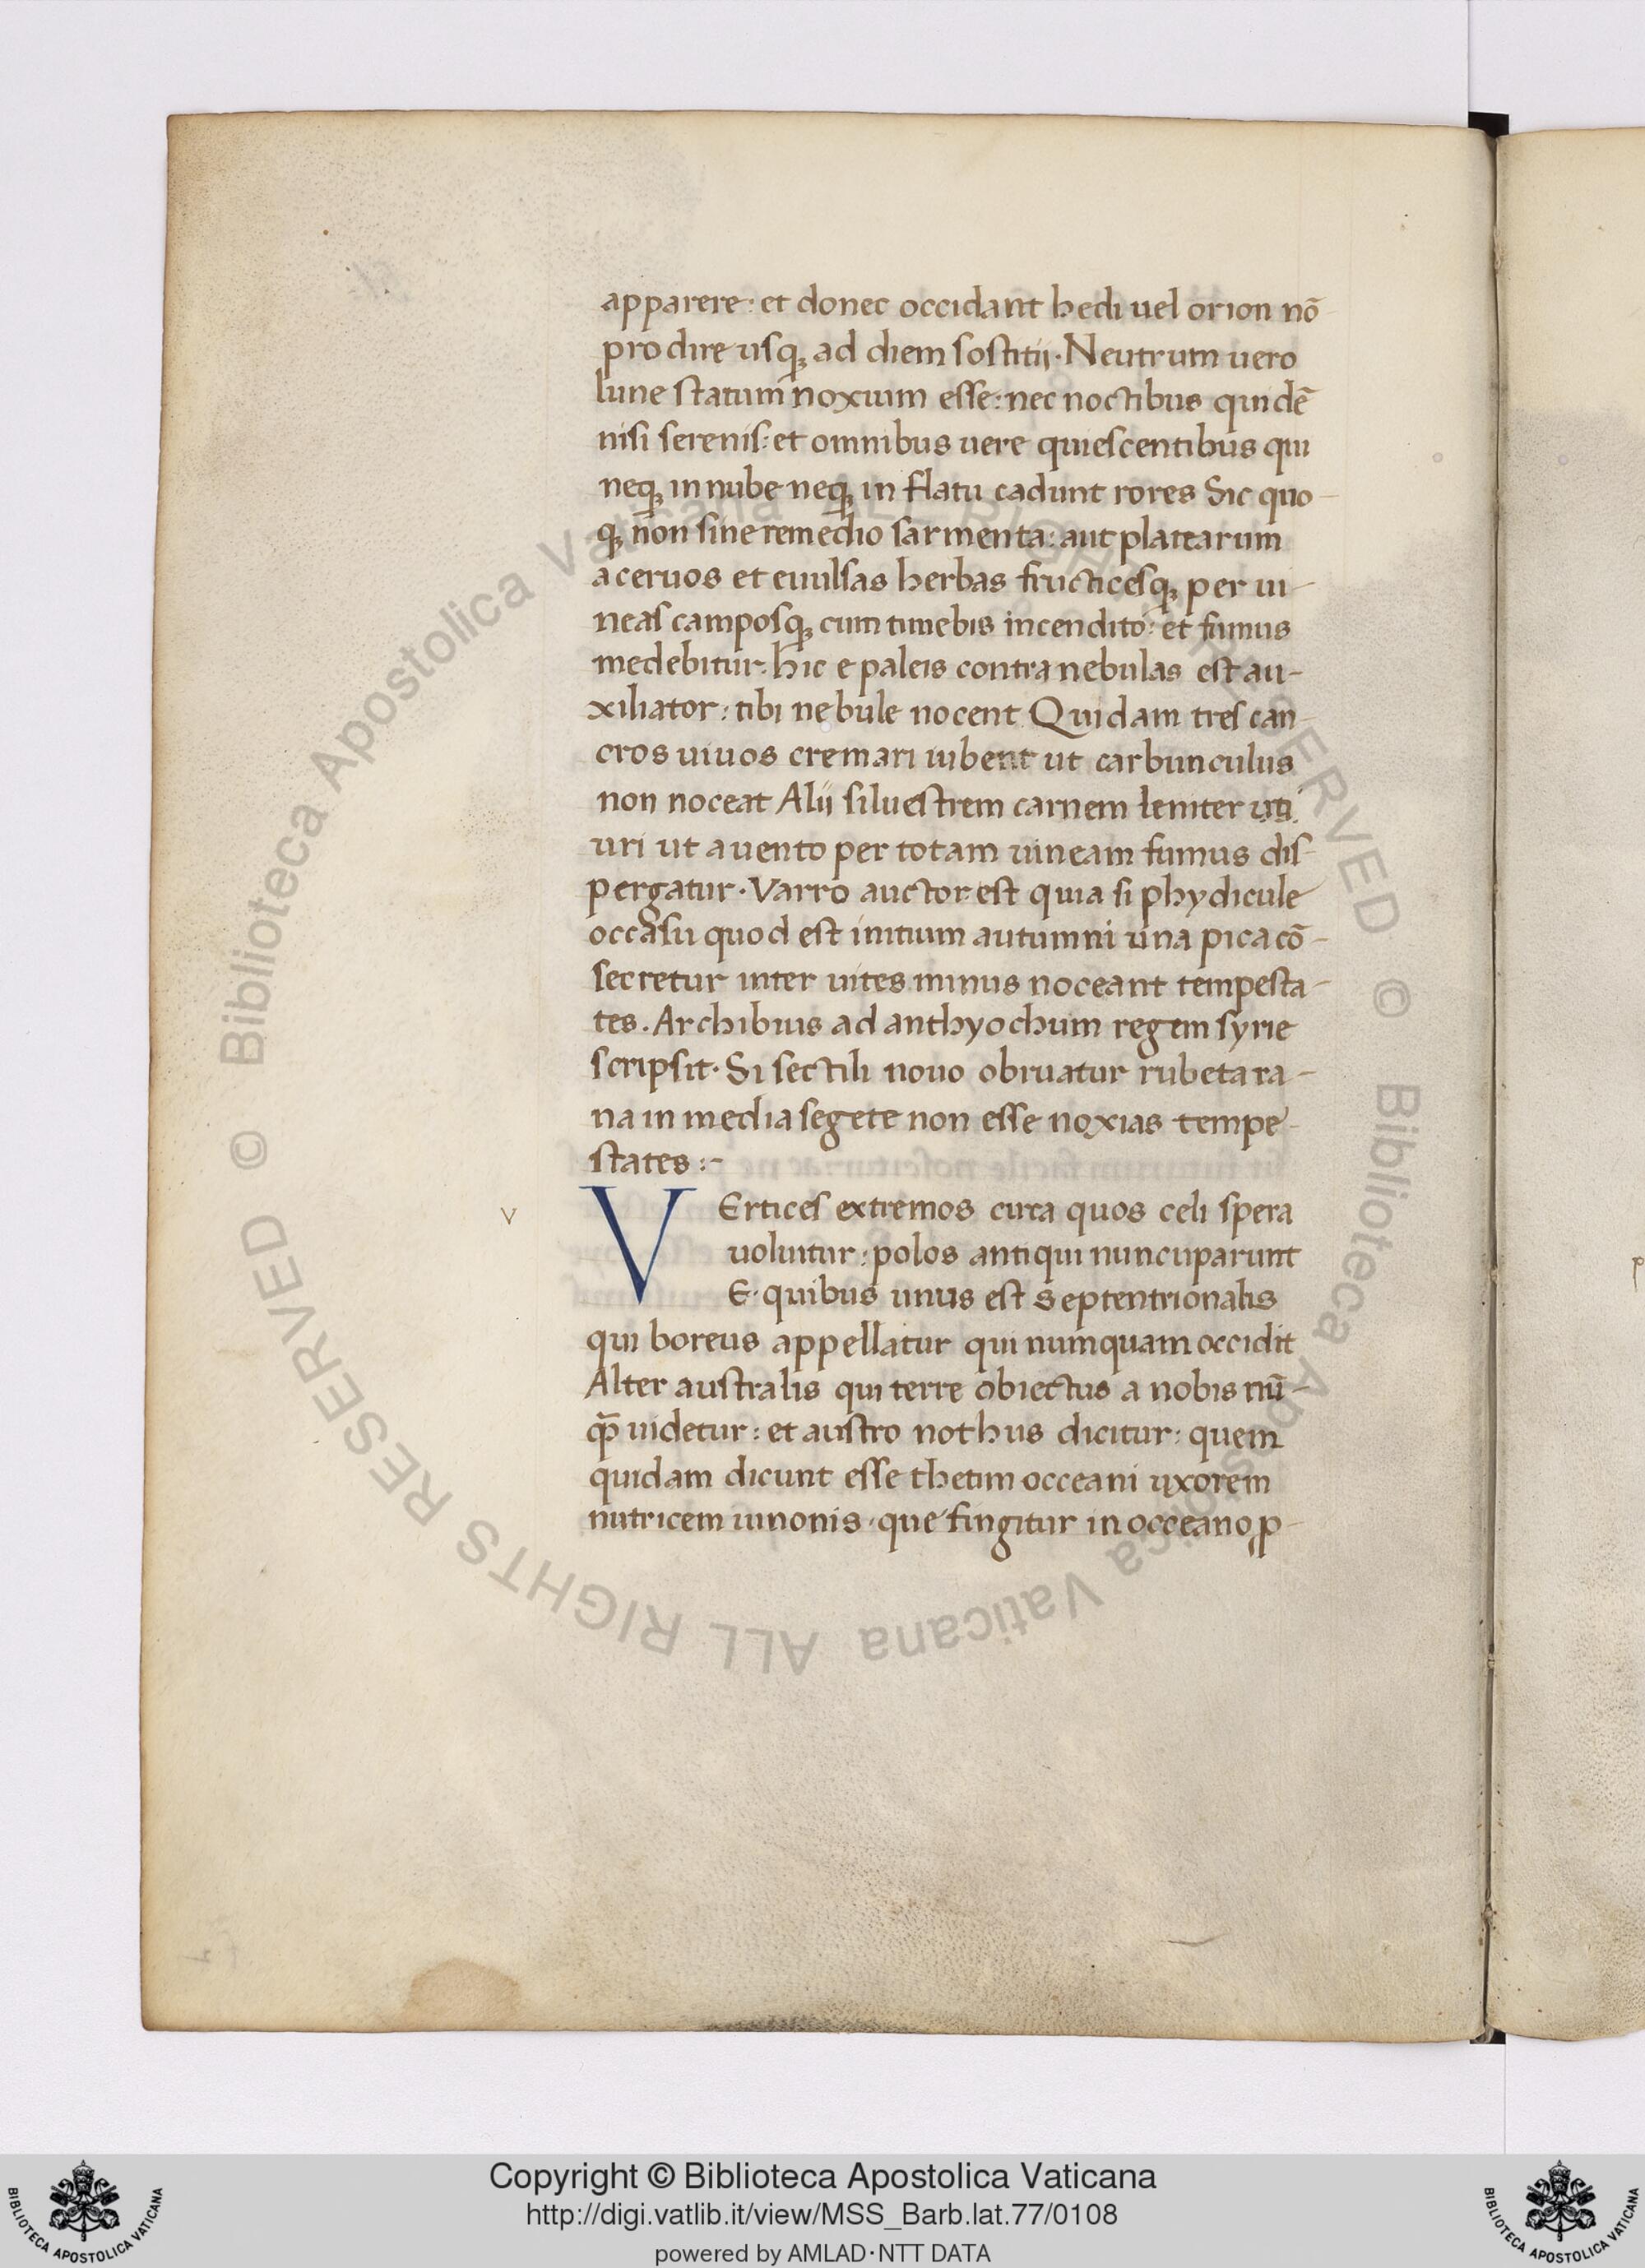 apparere: et donec occidant hedi uel orion nō
prodire usq; ad diem sostitij. Neutrum uero
lune statum noxium esse: nec noctibus quidē
nisi serenis: et omnibus uere quiescentibus qui
neq; in nube neq; in flatu cadunt rores Sic quo-
q; non sine remedio sarmenta: aut platearum
aceruos et euulsas herbas fructicesq; per ui-
neas camposq; cum timebis incendito: et fumus
medebitur. hic e paleis contra nebulas est au-
xiliator: tibi nebule nocent Quidam tres can-
cros uiuos cremari iubent ut carbunculus
non noceat Alij siluestrem carnem leniter uti
uri ut a uento per totam uineam fumus dis-
pergatur. Varro auctor est quia si phydicule
occasu quod est initium autumni una pica cō-
secretur inter uites minus noceant tempesta-
tes. Archibius ad anthyochum regem syrie
scripsit. Si sectili nouo obruatur rubeta ra-
na in media segete non esse noxias tempe-
states :-
v
VErtices extremos circa quos celi spera
uoluitur: polos antiqui nuncuparunt
E quibus unus est septentrionalis
qui boreus appellatur qui numquam occidit
Alter australis qui terre obiectus a nobis nū-
qȝ uidetur: et austro nothus dicitur: quem
quidam dicunt esse thetim occeani uxorem
nutricem iunonis. que fingitur in occeano p-
Copyright © Biblioteca Apostolica Vaticana
http://digi.vatlib.it/view/MSS_Barb.lat.77/0108
powered by AMLAD·NTT DATA
BIBLIOTECA APOSTOLICA VATICANA
BIBLIOTECA APOSTOLICA VATICANA
© Biblioteca Apostolica Vaticana ALL RIGHTS RESERVED © Biblioteca Apostolica Vaticana ALL RIGHTS RESERVED